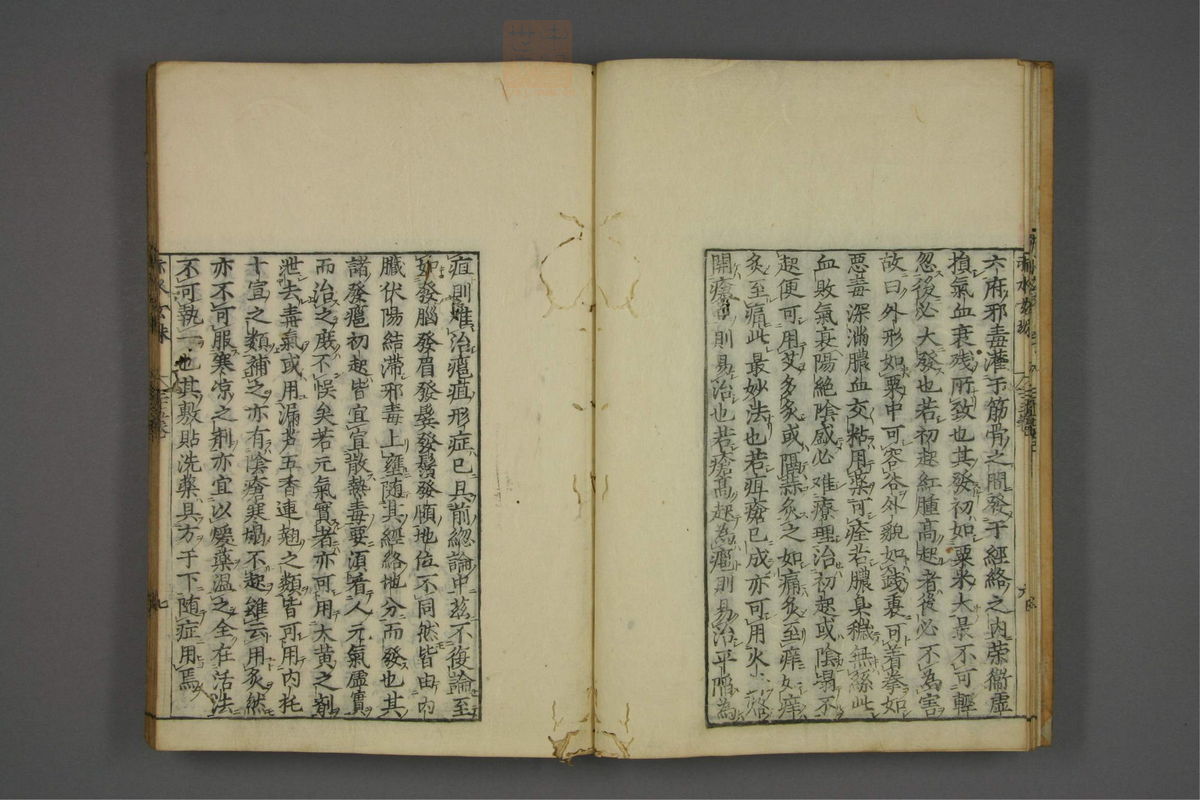 六府邪毒灌于筋骨之間發于經絡之内荣衞虚
損氣血衰残所致也其發初如粟米大最不可輕
忽後必大發也若初起紅腫高起者後必不為害
故曰外形如粟中可容谷外貌如錢裏可着拳如
惡毒深滿膿血交粘用藥可痊若膿臭穢無絲此
血敗氣衰陽絶陰盛必难療理治初起或陰塌不
起便可用艾多灸或隔蒜灸之如痛灸至痒如痒
灸至痛此最妙法也若疽瘡已成亦可用火烙
開瘡口則易治也若瘡高起為癰則易治平陷為
疽則难治癰疽形症已具前緫論中兹不復論至
如發腦發眉發鬂發鬚發頤地位不同然皆由内
臓伏陽結滯邪毒上壅随其經絡地分而發也其
諸發癰初起皆宜宣散熱毒要須看人元氣虚實
而治之庶不悮矣若元氣實者亦可用大黄之剤
泄去毒氣或用漏芦五香連翹之類皆可用内托
十宣之類補之亦有陰瘡寒塌不起雖云用灸然
亦不可服寒凉之剤亦宜以煖藥温之全在活法
不可執一也其敷貼洗藥具方于下随症用焉
七